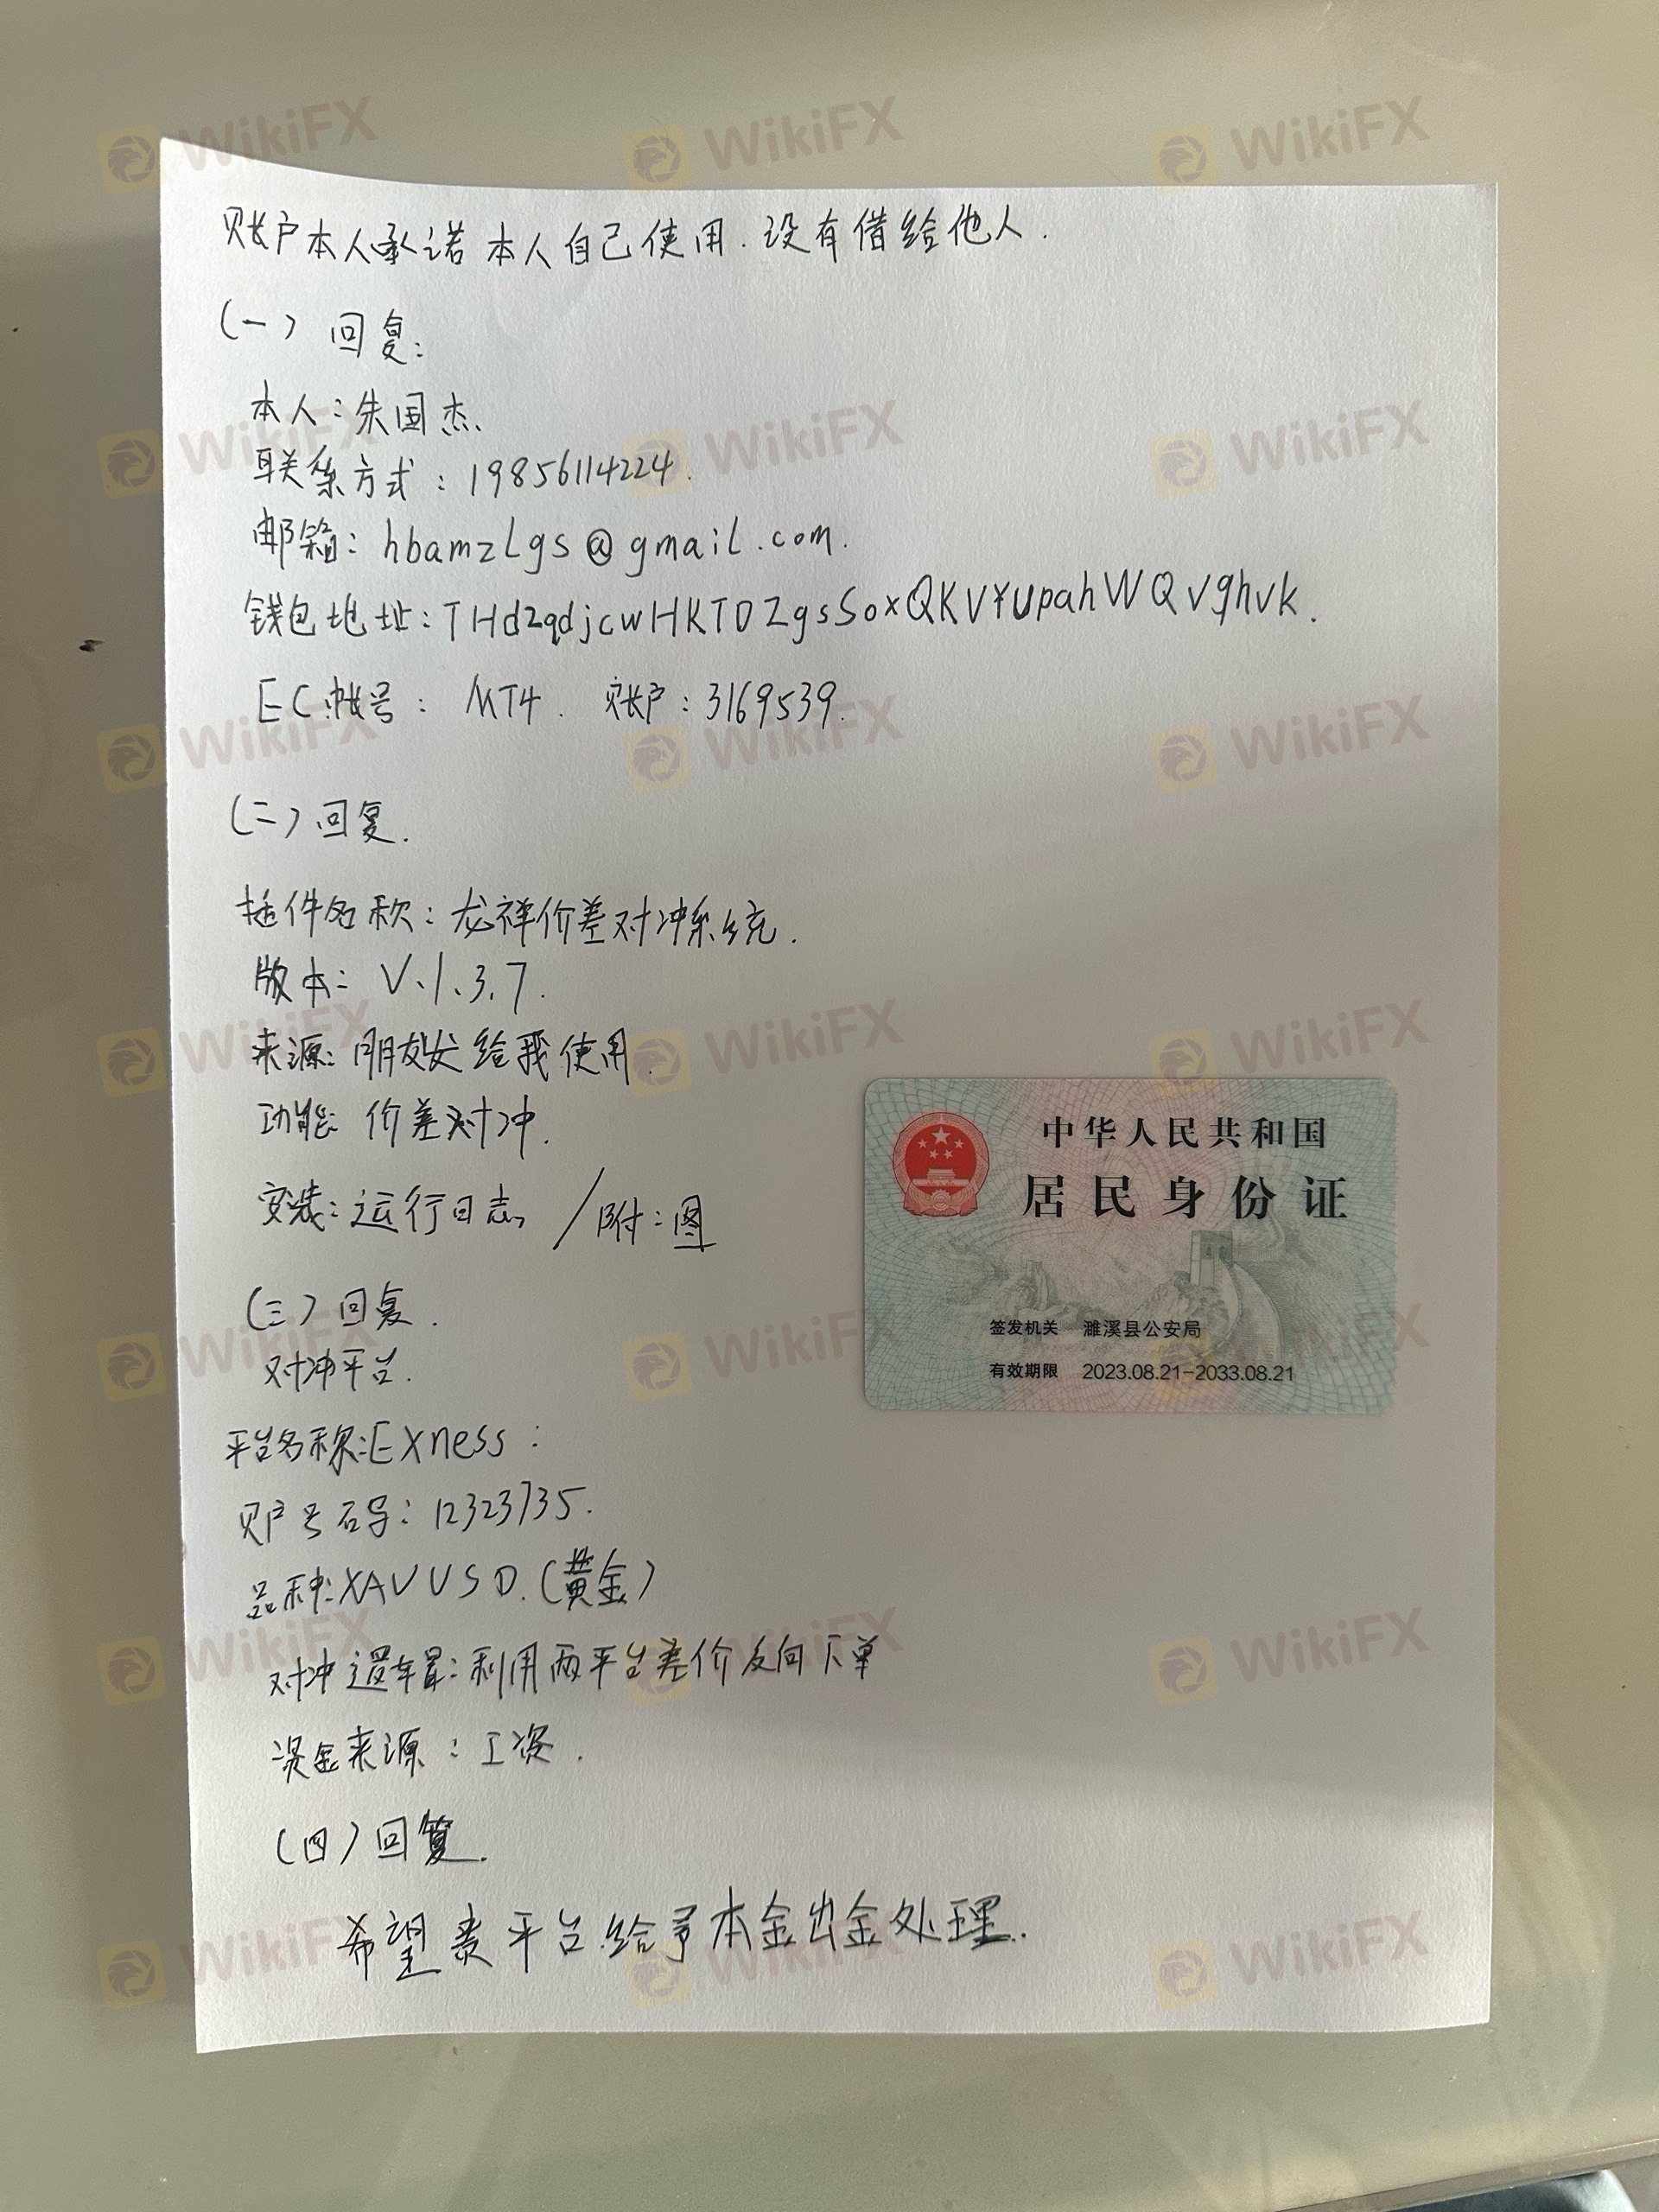 账户本人承诺本人自己使用.没有借给他人.
(一)回复:
本人:朱国杰.
联系方式:19856114224.
邮箱:hbamzLgs@gmail.com.
钱包地址:THdzqdjcwHKTDZgsSoxQKVYUpahWQVghvk.
EC帐号:MT4.账户:3169539.
(二)回复.
插件名称:龙祥价差对冲系统.
版本:V、1、3、7.
来源:朋友发给我使用.
功能:价差对冲.
安装:运行日志/附:图
(三)回复.
对冲平台.
平台名称:EXness:
账户号码:12323735.
品种:XAUUSD.(黄金)
对冲逻辑:利用两平台差价反向下单
资金来源:工资.
(四)回复.
希望贵平台给予本金出金处理.
中华人民共和国
居民身份证
签发机关 濉溪县公安局
有效期限 2023.08.21-2033.08.21
WikiFX